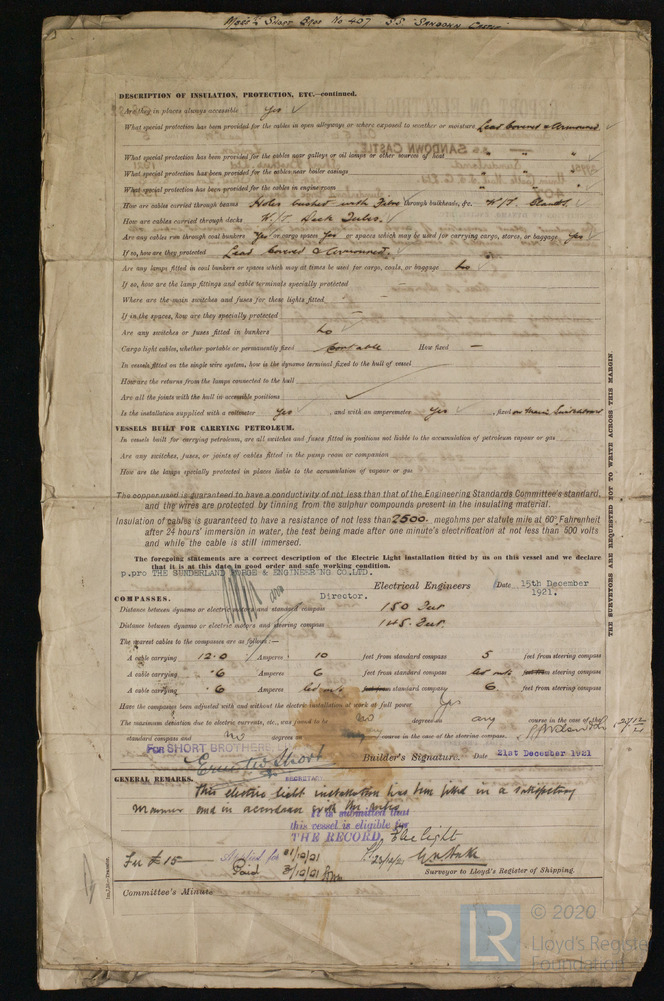 Messrs Short Bros No 407 S.S. "SANDOWN CASTLE"
DESCRIPTION OF INSULATION, PROTECTION, ETC.—continued.
Are they in places always accessible Yes ✓
What special protection has been provided for the cables in open alleyways or where exposed to weather or moisture Lead Covered & Armoured.
What special protection has been provided for the cables near galleys or oil lamps or other sources of heat " " ✓
What special protection has been provided for the cables near boiler casings " " ✓
What special protection has been provided for the cables in engine room " " ✓
How are cables carried through beams Holes bushed with Fibre through bulkheads, &c. W/T. Glands. ✓
How are cables carried through decks W/T Deck Tubes. ✓
Are any cables run through coal bunkers Yes or cargo spaces Yes or spaces which may be used for carrying cargo, stores, or baggage Yes ✓
If so, how are they protected Lead Covered & Armoured. ✓
Are any lamps fitted in coal bunkers or spaces which may at times be used for cargo, coals, or baggage No ✓
If so, how are the lamp fittings and cable terminals specially protected
Where are the main switches and fuses for these lights fitted —
If in the spaces, how are they specially protected —
Are any switches or fuses fitted in bunkers No ✓
Cargo light cables, whether portable or permanently fixed Portable How fixed —
In vessels fitted on the single wire system, how is the dynamo terminal fixed to the hull of vessel
How are the returns from the lamps connected to the hull
Are all the joints with the hull in accessible positions
Is the installation supplied with a voltmeter Yes ✓, and with an amperemeter Yes ✓, fixed on Main Switchboard
VESSELS BUILT FOR CARRYING PETROLEUM.
In vessels built for carrying petroleum, are all switches and fuses fitted in positions not liable to the accumulation of petroleum vapour or gas
Are any switches, fuses, or joints of cables fitted in the pump room or companion
How are the lamps specially protected in places liable to the accumulation of vapour or gas
The copper used is guaranteed to have a conductivity of not less than that of the Engineering Standards Committee's standard,
and the wires are protected by tinning from the sulphur compounds present in the insulating material.
Insulation of cables is guaranteed to have a resistance of not less than 2500. megohms per statute mile at 60° Fahrenheit
after 24 hours' immersion in water, the test being made after one minute's electrification at not less than 500 volts
and while the cable is still immersed.
The foregoing statements are a correct description of the Electric Light installation fitted by us on this vessel and we declare
that it is at this date in good order and safe working condition.
p.pro THE SUNDERLAND FORGE & ENGINEERING CO.LTD.
Electrical Engineers Date 15th December
1921.
Director.
COMPASSES.
Distance between dynamo or electric motors and standard compass 150 Feet
Distance between dynamo or electric motors and steering compass 145 Feet
The nearest cables to the compasses are as follows:—
A cable carrying 12.0 Amperes 10 feet from standard compass 5 feet from steering compass
A cable carrying .6 Amperes 6 feet from standard compass led into feet from steering compass
A cable carrying .6 Amperes led into feet from standard compass 6 feet from steering compass
Have the compasses been adjusted with and without the electric installation at work at full power Yes
The maximum deviation due to electric currents, etc., was found to be No degrees on any course in the case of the
standard compass and No degrees on any course in the case of the steering compass.
FOR SHORT BROTHERS,
Ernest W Short Builder's Signature. Date 21st December 1921
SECRETARY
GENERAL REMARKS.
This electric light installation has been fitted in a satisfactory
manner and in accordance with the rules
It is submitted that
this vessel is eligible for
THE RECORD. Elec light
Fee £15— Applied for 21/12/21
Paid
Surveyor to Lloyd's Register of Shipping.
Committee's Minute
THE SURVEYORS ARE REQUESTED NOT TO WRITE ACROSS THIS MARGIN.
LR © 2020
Lloyd's Register
Foundation